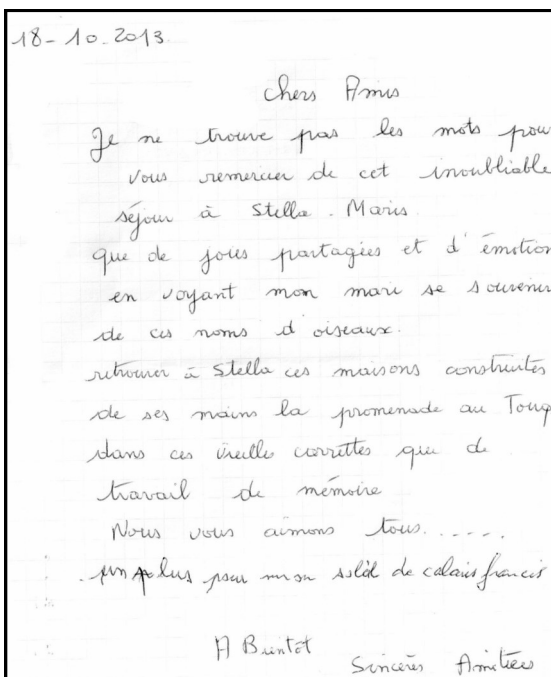 18-10-2013
Chers Amis
Je ne trouve pas les mots pour
vous remercier de cet inoubliable
séjour à Stella. Maris.
que de joies partagées et d'émotion
en voyant mon mari se souvenir
de ces noms d'oiseaux.
retrouver à Stella ces maisons construites
de ses mains la promenade au Touq
dans ces vieille corvettes que de
travail de mémoire
Nous vous aimons tous......
un plus pour mon soleil de calais francis
A Bientôt
Sincères Amitiées